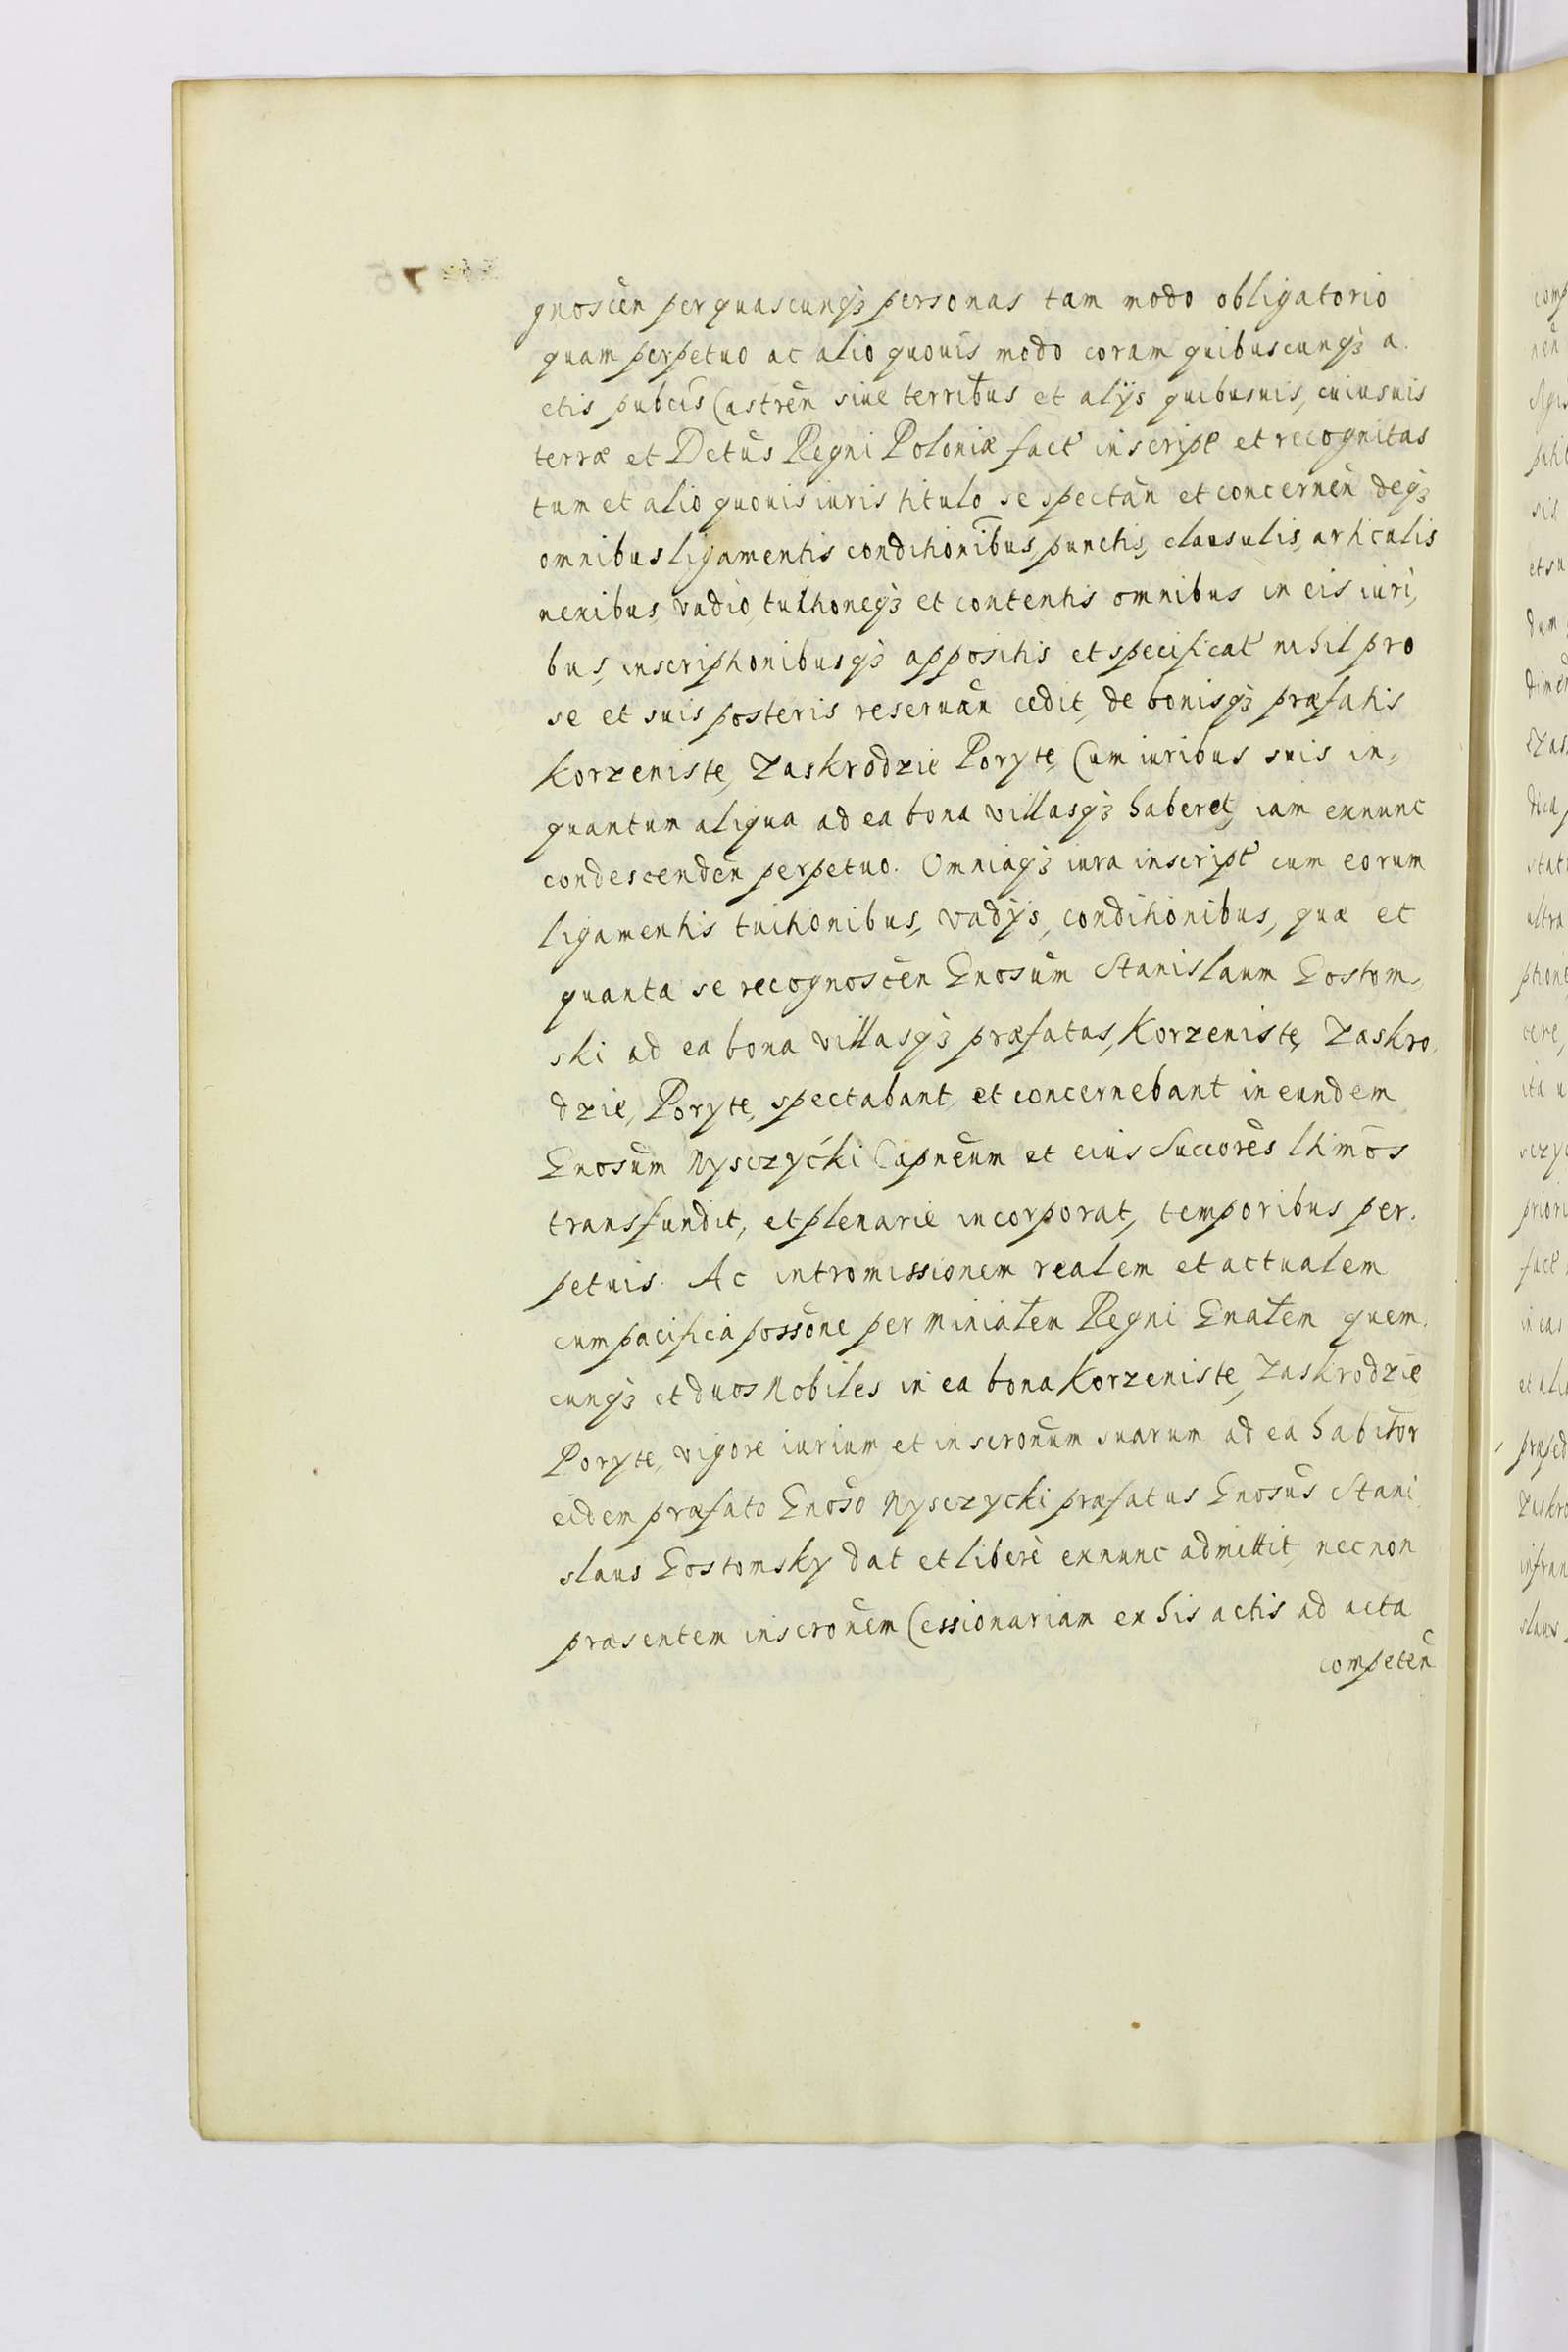 gnoscen̄ per quascunqȝ personas tam modo obligatorio
quam perpetuo ac alio quouis modo coram quibuscunqȝ a.
ctis pubcis Castren̄ siue terribus et alijs quibusuis, cuiusuis
terræ et Dctus Regni Poloniæ fact inscript et recognitas
tum et alio quouis iuris titulo se spectan̄ et concernen̄ deqȝ
omnibus ligamentis conditionibus, punctis, clausulis, articulis
nexibus, vadio, tuitioneqȝ et contentis omnibus in eis iuri,
bus, inscriptionibusqȝ appositis et specificat nihil pro
se et suis posteris reseruan̄ cedit, de bonisqȝ præfatis
Korzeniste, Zaskrodzie Poryte, Cum iuribus suis in,,
quantum aliqua ad ea bona villasqȝ haberet, iam exnunc
condescenden̄ perpetuo. Omniaqȝ iura inscript cum eorum
ligamentis tuitionibus, vadijs, conditionibus, quæ et
quanta se recognoscen̄ Gnosum Stanislaum Gostom,,
ski ad ea bona villasqȝ præfatas, Korzeniste, Zaskro.
dzie, Poryte, spectabant et concernebant in eundem
Gnosum Nysczycki Capneum et eius Succores lhimos
transfundit, et plenarie incorporat, temporibus per.
petuis. Ac intromissionem realem et actualem
cum pacifica possone per Miniatem Regni Gnatem quem.
cunqȝ et duos Nobiles in ea bona Korzeniste, Zaskrodzie
Poryte, vigore iurium et inscronum suarum ad ea habitor
eidem præfato Gnoso Nysczycki præfatus Gnosus Stani
slaus Gostomsky dat et liberè exnunc admittit, necnon
præsentem inscronem Cessionariam ex his actis ad acta
competen̄